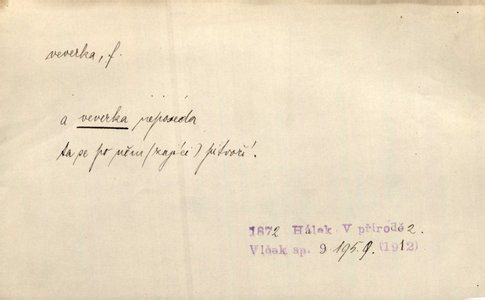 veverka, f.
a veverka neposeda
ta se po něm (zajíci) pitvoří.
1872 Hálek V přírodě 2.
Vlček sp. 9 195.9. (1912)